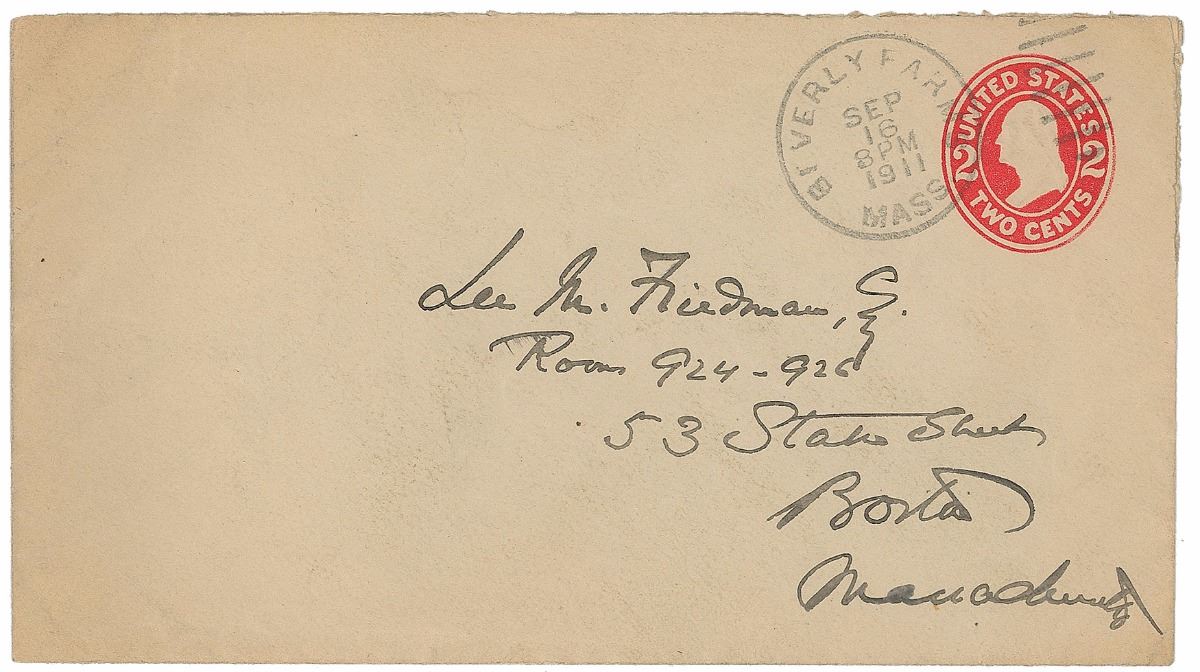 BEVERLY FARMS
SEP
16
8 PM
1911
MASS
UNITED STATES
2 2
TWO CENTS
Lee M. Friedman, Esq.
Room 924-926
53 State Street
Boston
Massachusetts